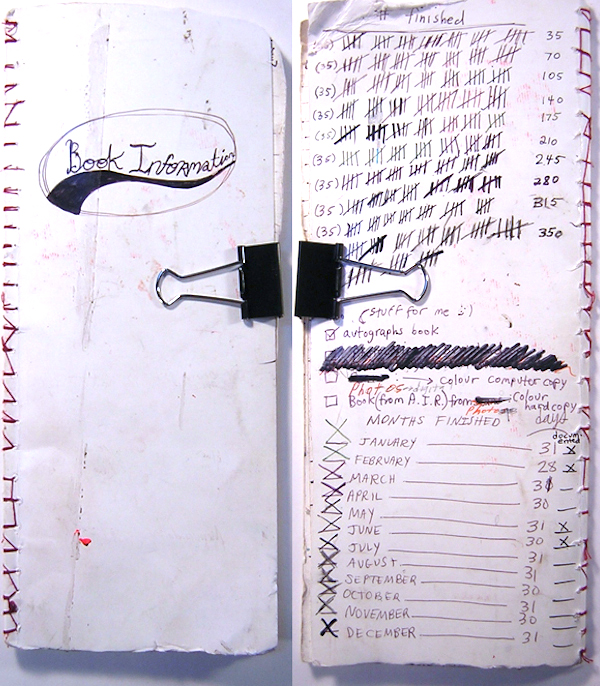 Book Information
# finished
35
(35) 70
(35) 105
(35) 140
(35) 175
(35) 210
(35) 245
(35) 280
(35) 315
(35) 350
(stuff for me :)
autographs book
→ colour computer copy
Photos
Book (from A.I.R) from colour
Photo hardcopy
MONTHS FINISHED days
documented
JANUARY 31 x
FEBRUARY 28 x
MARCH 31
APRIL 30
MAY 31 x
JUNE 30 x
JULY 31
AUGUST 31
SEPTEMBER 30
OCTOBER 31
NOVEMBER 30
DECEMBER 31